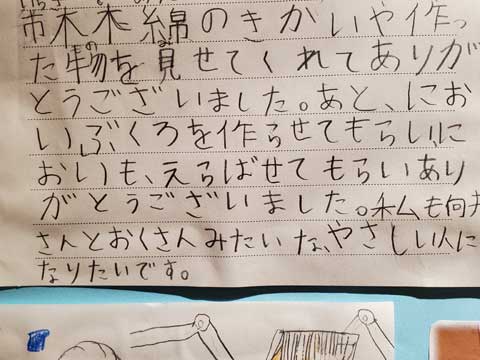 市木木綿のきかいや作っ
もの み
た物を見せてくれてありが
とうございました。あと、にお
いぶくろを作らせてもらい、に
おいも、えらばせてもらいあり
がとうございました。私も向井
さんとおくさんみたいな、やさしい人に
なりたいです。